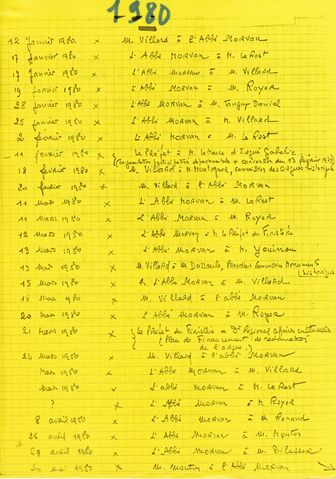 1980
12 Janvier 1980 x M. Villard à l'Abbé MORVAN
17 Janvier 1980 x L'Abbé MORVAN à M. Le Rest
17 Janvier 1980 x L'Abbé MORVAN à M. Villard
19 Janvier 1980 x L'Abbé MORVAN à M. ROYER
28 Janvier 1980 x L'Abbé MORVAN à M. Tanguy Daniel
28 Janvier 1980 x L'Abbé MORVAN à M. Villard
2 février 1980 x L'Abbé MORVAN à M. Le Rest
11 février 1980 x Le Préfet à M. le Maire d'Ergué Gabéric
18 février 1980 x M. Villard à M.
20 février 1980 x M. Villard à l'Abbé MORVAN
11 mars 1980 x L'Abbé MORVAN à M. Le Rest
11 mars 1980 x L'Abbé MORVAN à M. ROYER
12 mars 1980 x L'Abbé MORVAN à M. le Préfet du Finistère
13 mars 1980 x L'Abbé MORVAN à M. Youinou
13 mars 1980 x M. Villard à M.
15 mars 1980 x L'Abbé MORVAN à M. Villard
18 mars 1980 x M. Villard à l'abbé MORVAN
20 mars 1980 x L'Abbé MORVAN à M. ROYER
21 mars 1980 x Le Préfet du Finistère à Dr Régional affaires culturelles
(Plan de financement de restauration
de l'orgue)
21 mars 1980 x M. Villard à l'abbé MORVAN
Mars 1980 x L'Abbé MORVAN à M. Villard
Mars 1980 x L'abbé MORVAN à M. Le Rest
? x L'Abbé MORVAN à M. ROYER
8 avril 1980 x L'Abbé MORVAN à M. Renaud
26 avril 1980 x L'Abbé MORVAN à M. Mouton
28 avril 1980 x L'Abbé MORVAN à M.
20 mai 1980 x M. Mouton à l'Abbé MORVAN